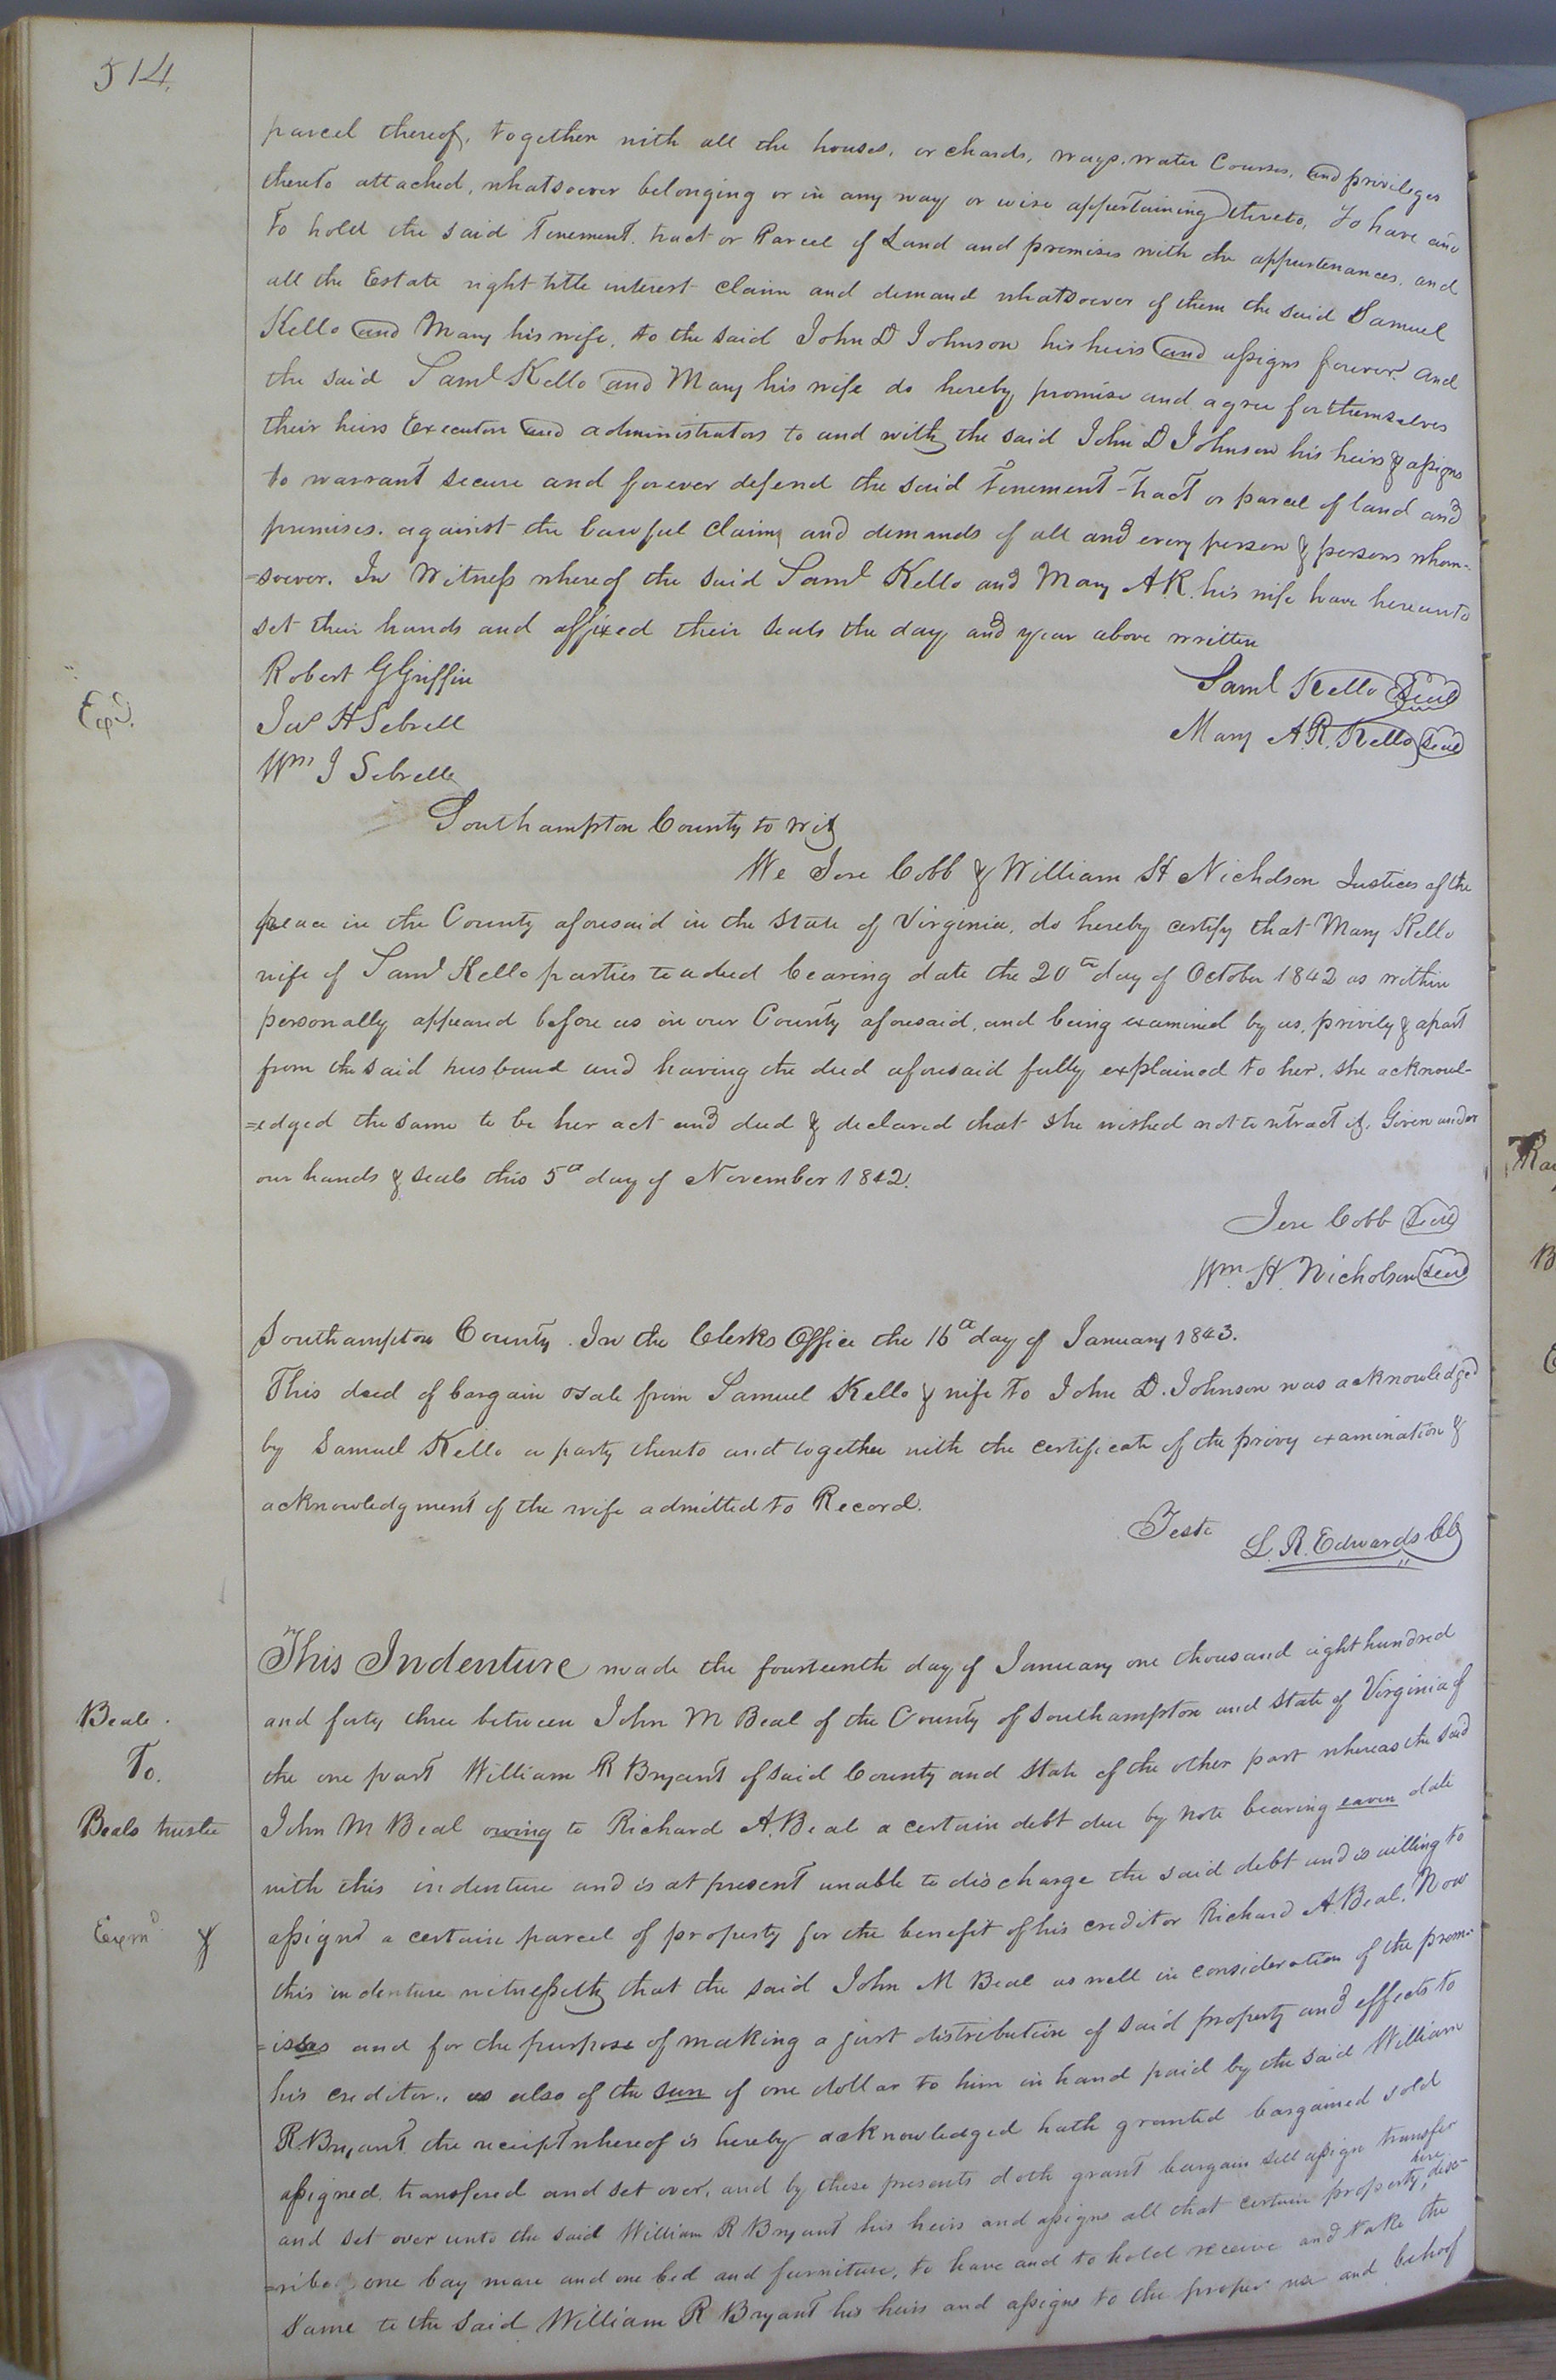 514.
parcel thereof, together with all the houses, orchards, ways, water Courses, and privileges
thereto attached, whatsoever belonging or in any way or wise appertaining thereto, To have and
To hold the said Tenement, tract or Parcel of Land and premises with the appurtenances, and
all the Estate right title interest claim and demand whatsoever of them the said Samuel
Kello and Mary his wife, to the said John D Johnson his heirs and assigns forever. And
the said Saml Kello and Mary his wife do hereby promise and agree for themselves
their heirs Executors and administrators to and with the said John D Johnson his heirs & assigns
to warrant secure and forever defend the said Tenement tract or parcel of land and
premises. against the lawful claims and demands of all and every person & persons whom-
=soever. In Witness whereof the said Saml Kello and Mary A.R. his wife have hereunto
set their hands and affixed their seals the day and year above written
Robert G Griffin
Saml Kello Seal
Exd.
Jas H Sebrell
Mary A.R. Kello Seal
Wm J Sebrell
Southampton County to wit
We Jere Cobb & William H Nicholson Justices of the
peace in the County aforesaid in the State of Virginia, do hereby certify that Mary Kello
wife of Saml Kello parties to a deed bearing date the 20th day of October 1842 as within
personally appeared before us in our County aforesaid, and being examined by us, privily & apart
from the said husband and having the deed aforesaid fully explained to her, she acknowl-
=edged the same to be her act and deed & declared that she wished not to retract it, Given under
our hands & seals this 5th day of November 1842.
Jere Cobb Seal
Wm. H. Nicholson Seal
Southampton County. In the Clerks Office the 16th day of January 1843.
This deed of bargain & sale from Samuel Kello & wife To John D. Johnson was acknowledged
by Samuel Kello a party thereto and together with the certificate of the privy examination &
acknowledgment of the wife admitted to Record.
Teste L. R. Edwards CC
This Indenture made the fourteenth day of January one thousand eight hundred
Beale.
and forty three between John M Beal of the County of Southampton and State of Virginia of
To.
the one part William R Bryant of said County and State of the other part whereas the said
Beals trustee
John M Beal owing to Richard A. Beal a certain debt due by note bearing eaven date
with this indenture and is at present unable to discharge the said debt and is willing to
Exmd &
assignd a certain parcel of property for the benefit of his creditor Richard A. Beal. Now
this indenture witnesseth that the said John M Beal as well in consideration of the prem-
=isses and for the purpose of making a just distribution of said property and effects to
his creditor., as also of the sun of one dollar to him in hand paid by the said William
R Bryant the receipt whereof is hereby acknowledged hath granted bargained sold
assigned, transfered and set over, and by these presents doth grant bargain sell assign transfer
and set over unto the said William R Bryant his heirs and assigns all that certain property, here desc-
=ribe one bay mare and one bed and furniture, to have and to hold receive and take the
same to the said William R Bryant his heirs and assigns to the proper use and behoof